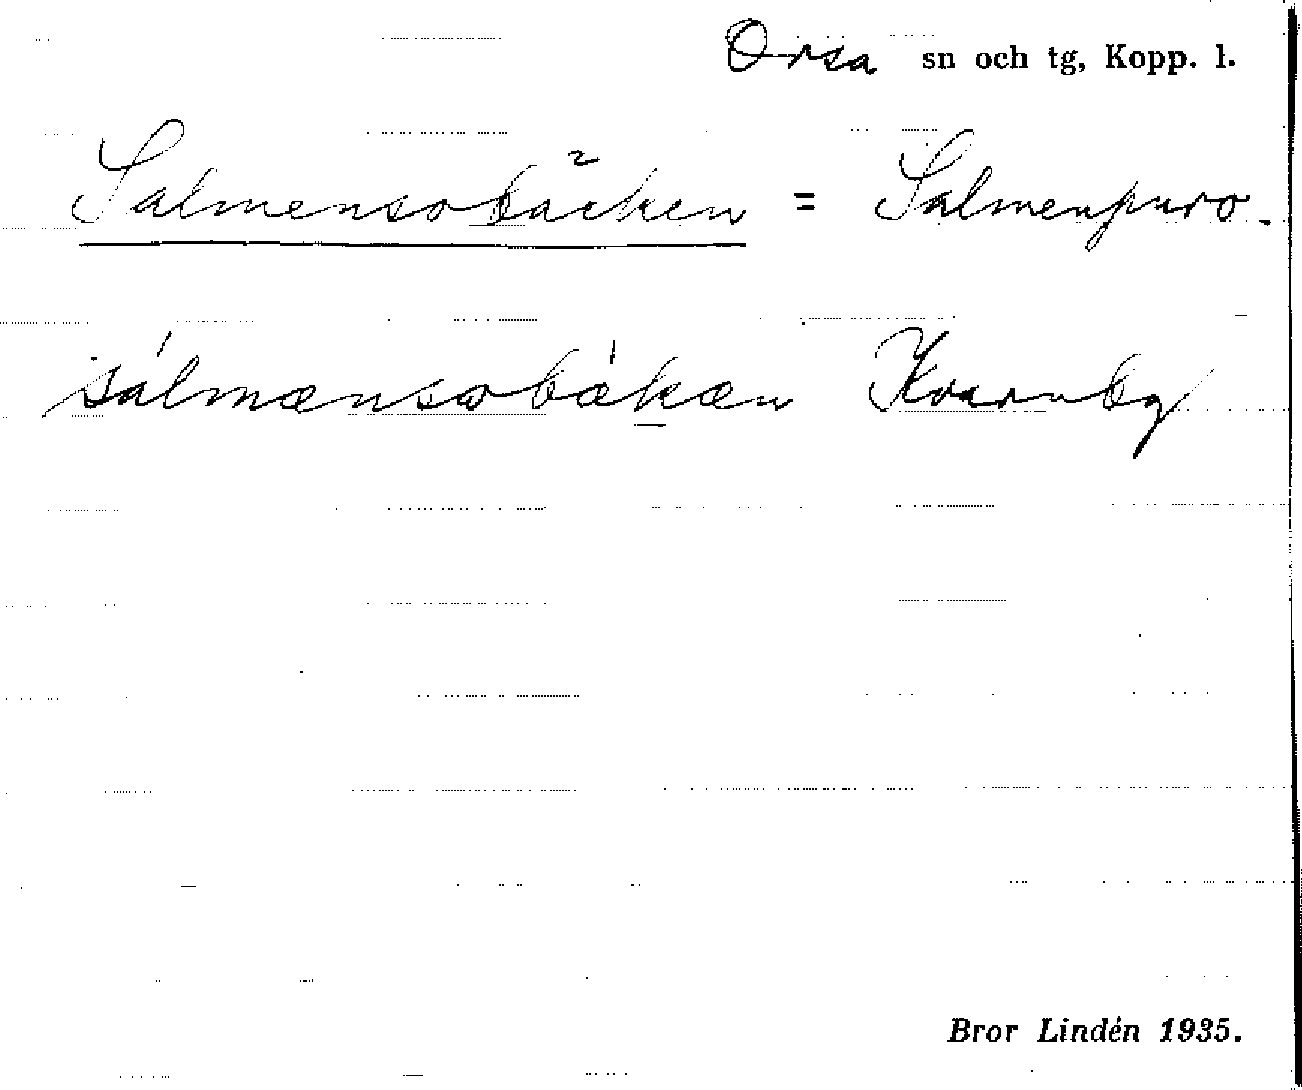 Orsa sn och tg, Kopp. l.
Salmensobäcken = Salmenpuro.
sálmænsobǽkæn Kvarnby
Bror Lindén 1935.